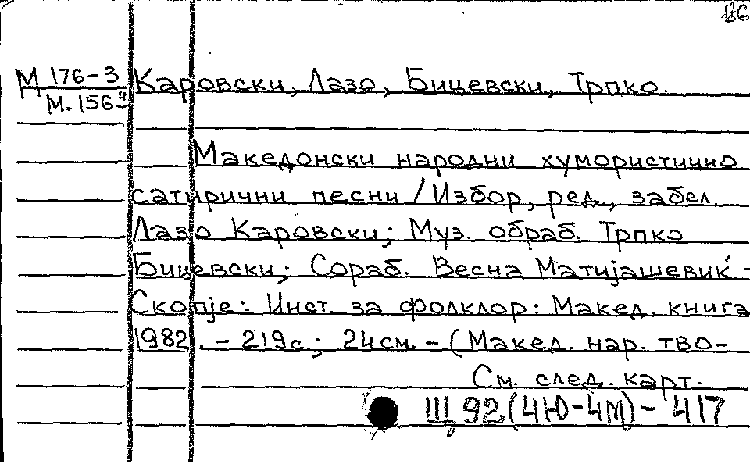 126
М 176-3
М. 156
Каровски, Лазо, Бицевски, Трпко
Македонски народни хумористично
сатирични песни / Избор, ред., забел.
Лазо Каровски; Муз. обраб. Трпко
Бицевски; Сораб. Весна Матијашевиќ -
Скопје: Инст. за фолклор: Макед. книга
1982. - 219с; 24см. - (Макед. нар. тво-
См. след. карт.
Щ 92(4Ю-4М) - 417